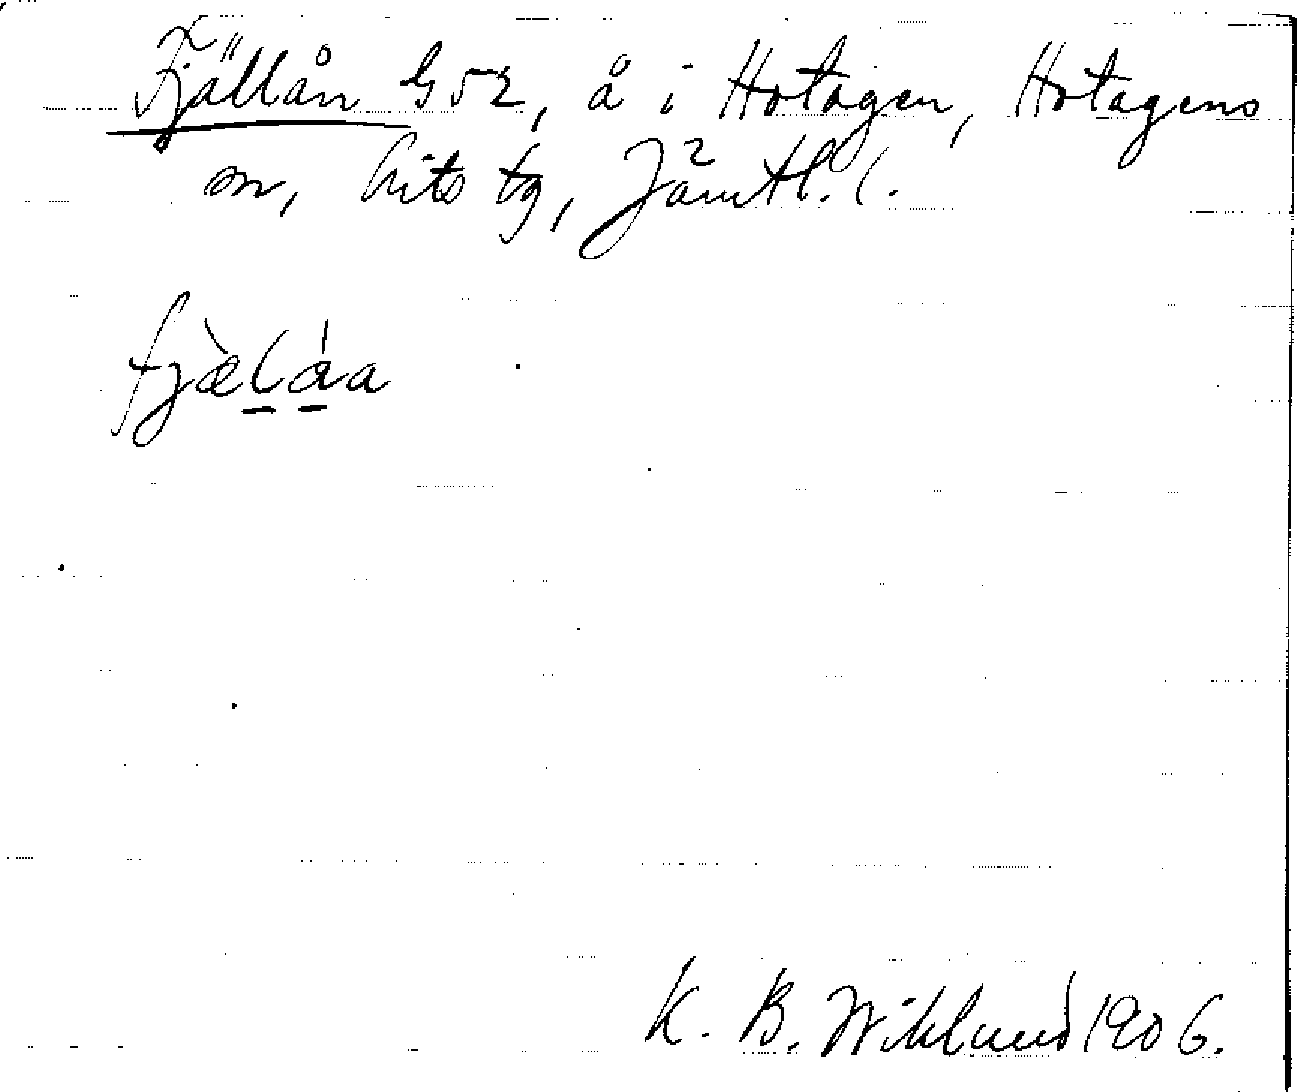 Fjällån G52, å i Hotagen, Hotagens
sn, Lits tg, Jämtl. l.
fjæ̀láa
K. B. Wiklund 1906.